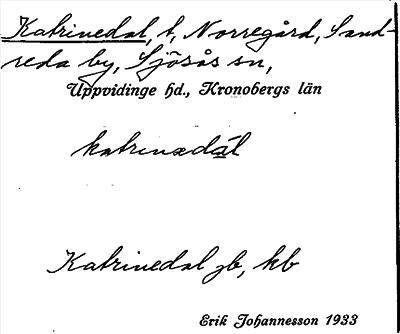 Katrinedal, t, Norregård, Sand-
reda by, Sjösås sn,
Uppvidinge hd., Kronobergs län
katrinedál
Katrinedal gb, kb
Erik Johannesson 1933